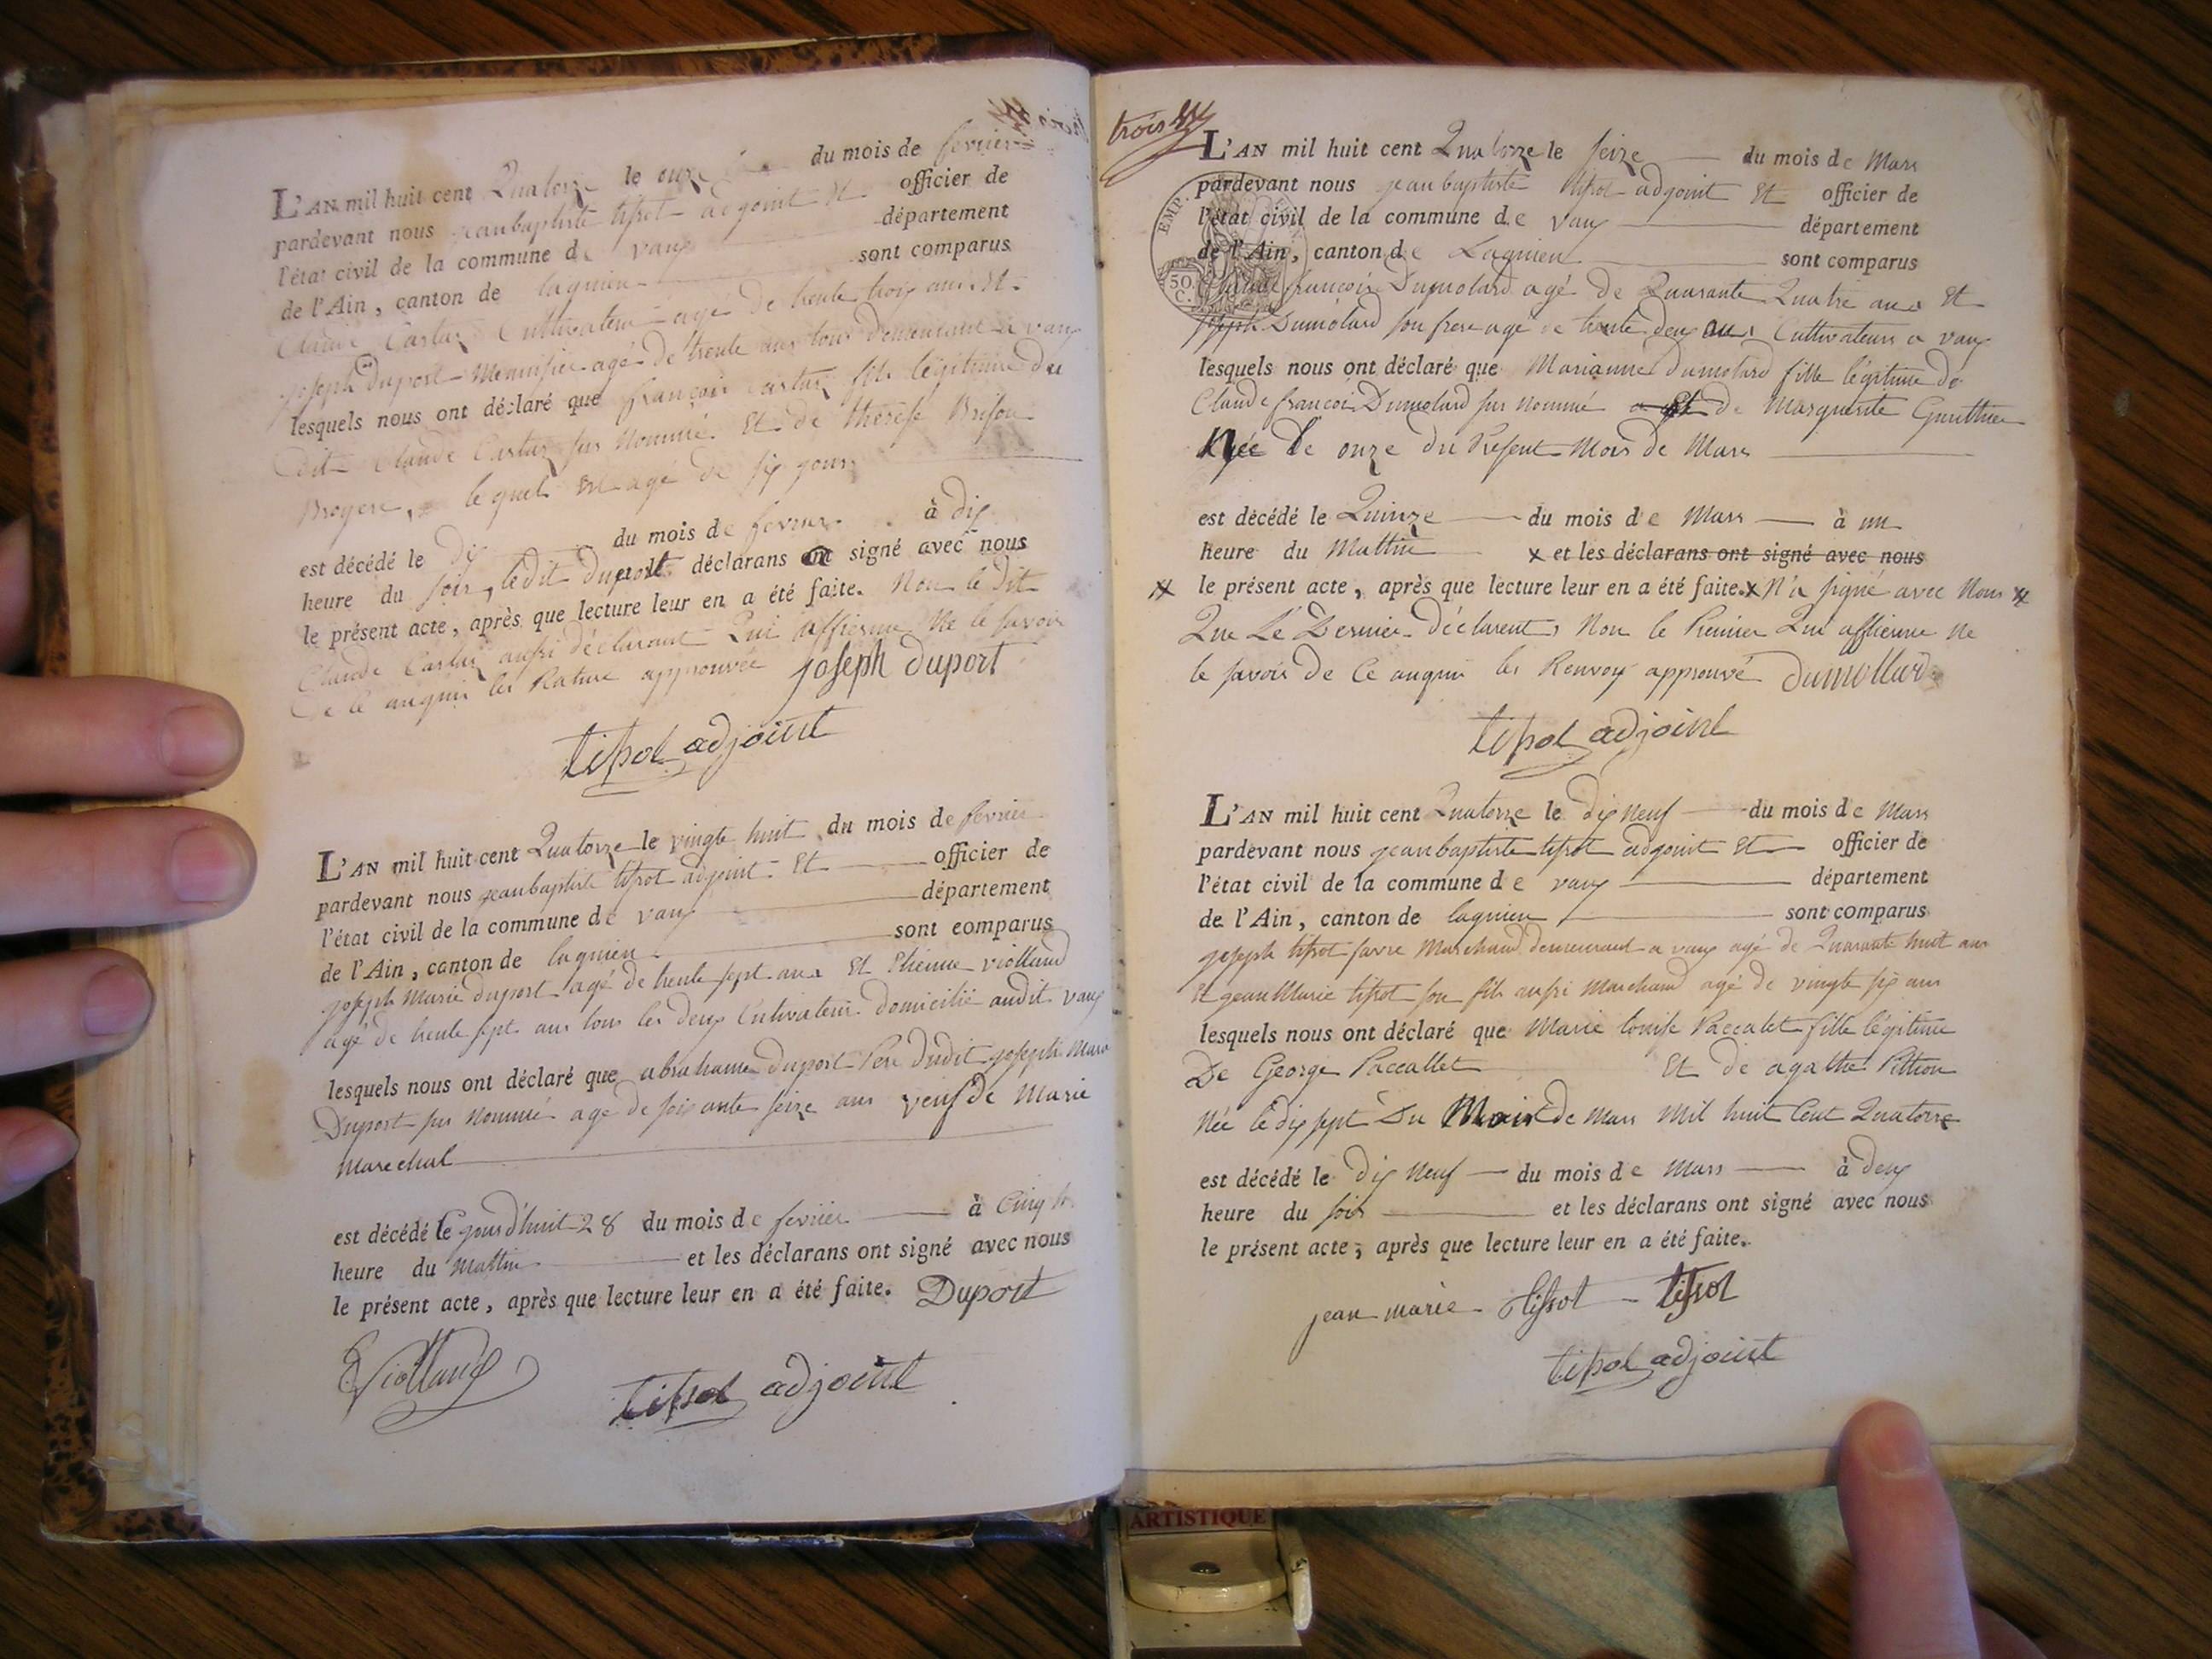 L'AN mil huit cent Quatorze le onze du mois de fevrier
pardevant nous jean baptiste tissot adjoint Et officier de
l'état civil de la commune de vaux département
de l'Ain, canton de lagnieu sont comparus
Claude Cultivateur agé de trente trois ans Et
joseph duport Menuisier agé de trente ans tous demeurant a vaux
lesquels nous ont déclaré que françois fils légitime du
dit Claude sus nommé Et de therese
lequel Est agé de six jours
est décédé le dix du mois de fevrier à dix
heure du soir, le dit duport déclarans signé avec nous
le présent acte, après que lecture leur en a été faite. Non le dit
Claude aussi déclarant Qui affierme Ne le savoir
De ce anquis les Rature approuvée joseph duport
tissot adjoint
L'AN mil huit cent Quatorze le vingte huit du mois de fevrier
pardevant nous jean baptiste tissot adjoint Et officier de
l'état civil de la commune de vaux département
de l'Ain, canton de lagnieu sont comparus
joseph Marie duport agé de trente sept ans Et Etienne viollaud
agé de trente sept ans tous les deux Cultivateur domicilié audit vaux
lesquels nous ont déclaré que abrahame duport Pere dudit joseph Marie
Duport sus nommé agé de soixante seize ans veuf de Marie
Marechal
est décédé le jourd'huit 28 du mois de fevrier à Cinq h
heure du Mattin et les déclarans ont signé avec nous
le présent acte, après que lecture leur en a été faite. Duport
E Viollaud tissot adjoint
trois
L'AN mil huit cent Quatorze le seize du mois de Mars
pardevant nous jean baptiste tissot adjoint Et officier de
l'état civil de la commune de vaux département
de l'Ain, canton de Lagnieu sont comparus
EMP.
50 C.
Claude françois Dumolard agé de Quarante Quatre ans Et
joseph Dumolard son frere agé de trente deux ans Cultivateurs a vaux
lesquels nous ont déclaré que Marianne dumolard fille légitime de
Claude françois Dumolard sus nommé Et de Marguerite Gauttier
Née le onze du Présent Mois de Mars
est décédé le Quinze du mois de Mars à un
heure du Mattin x et les déclarans ont signé avec nous
x le présent acte, après que lecture leur en a été faite. x N'a signé avec Nous x
Que Le Dernier déclarent, Non le Premier Qui affierme ne
le savoir de Ce anquis les Renvoy approuvé dumollard
tissot adjoint
L'AN mil huit cent Quatorze le dix Neuf du mois de Mars
pardevant nous jean baptiste tissot adjoint Et officier de
l'état civil de la commune de vaux département
de l'Ain, canton de lagnieu sont comparus
joseph tissot favre Marchand demeurant a vaux agé de Quarante huit ans
Et jean Marie tissot son fils aussi Marchand agé de vingte six ans
lesquels nous ont déclaré que Marie louise Paccalet fille légitime
De George Paccallet Et de agathe Pittion
Née le dix sept Du Mois de Mars Mil huit Cent Quatorze
est décédé le dix Neuf du mois de Mars à deux
heure du soir et les déclarans ont signé avec nous
le présent acte, après que lecture leur en a été faite.
jean marie tissot tissot
tissot adjoint
ARTISTIQUE